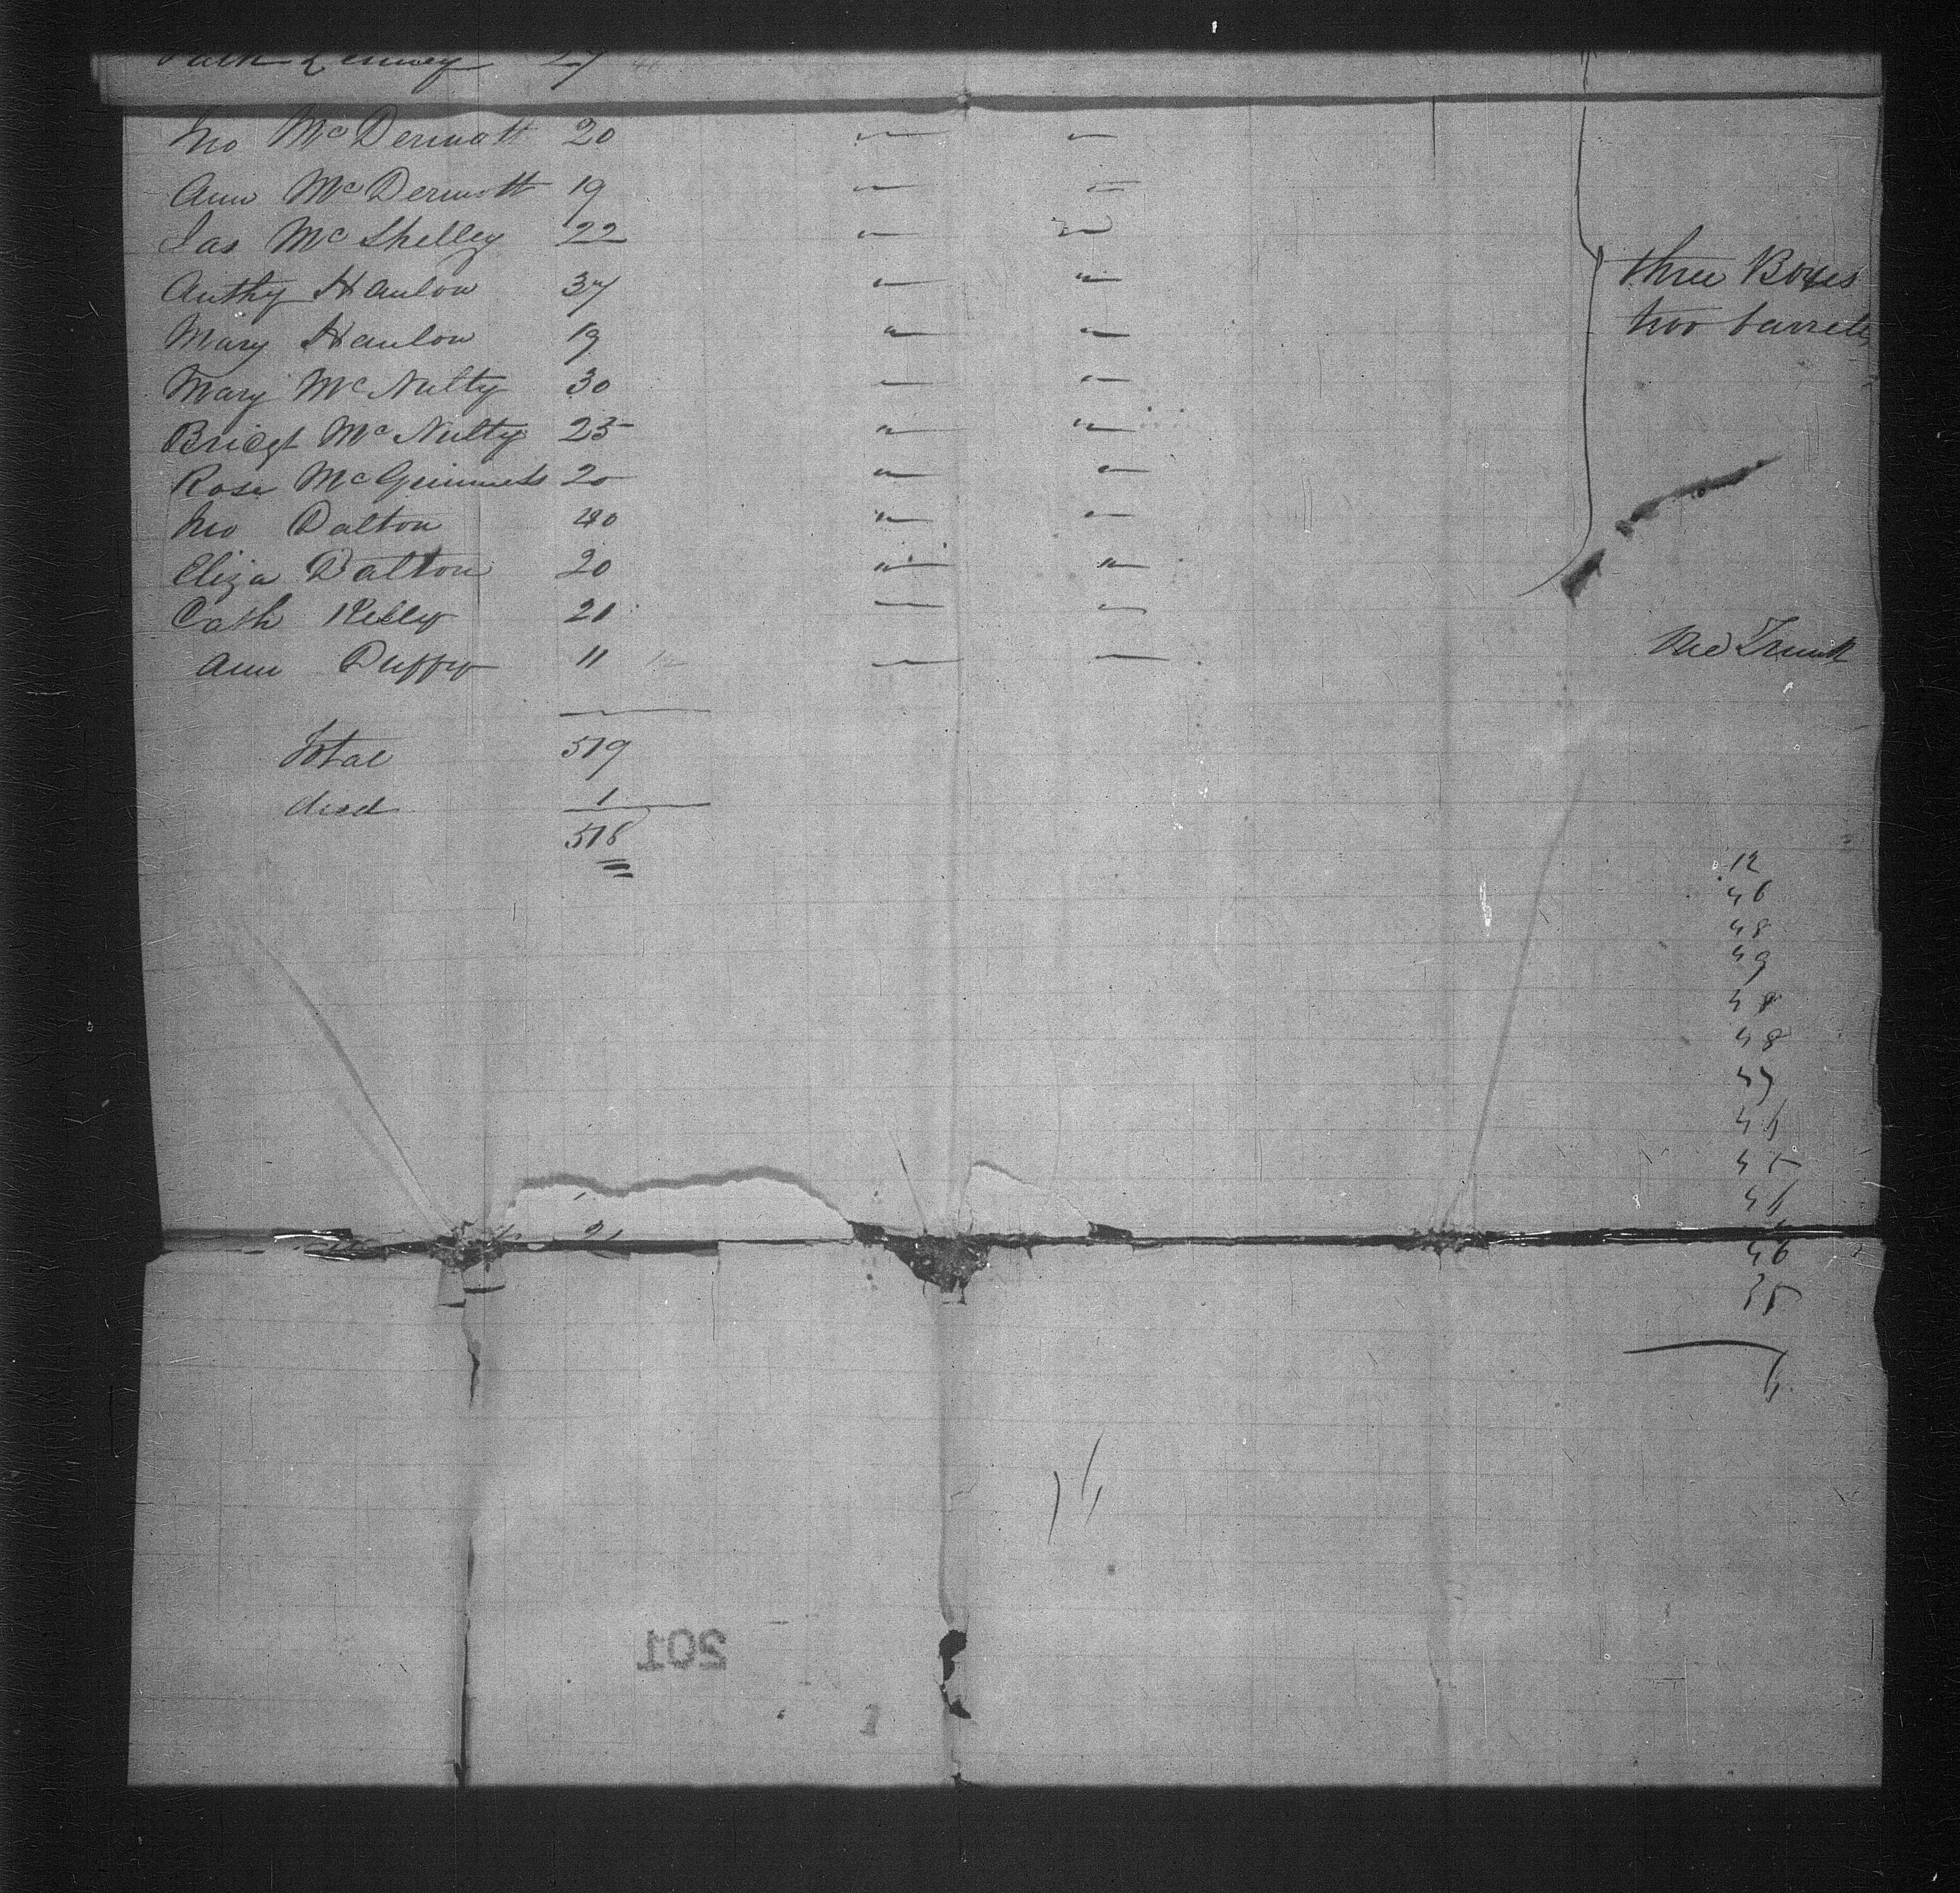 27
Jno McDermott 20 " "
Ann McDermott 19 " "
Jas McShelley 22 " "
Anthy Hanlon 37 " "
Mary Hanlon 19 " "
Mary McNulty 30 " "
Bridgt McNulty 25 " "
Rose McGuinness 20 " "
Jno Dalton 40 " "
Eliza Dalton 20 " "
Cath Kelly 21 " "
Ann Duffy 11 12 " "
three Boxes
two barrels
One Trunk
Total 519
died 1
518
12
46
48
49
48
48
47
46
45
46
46
35
201
1